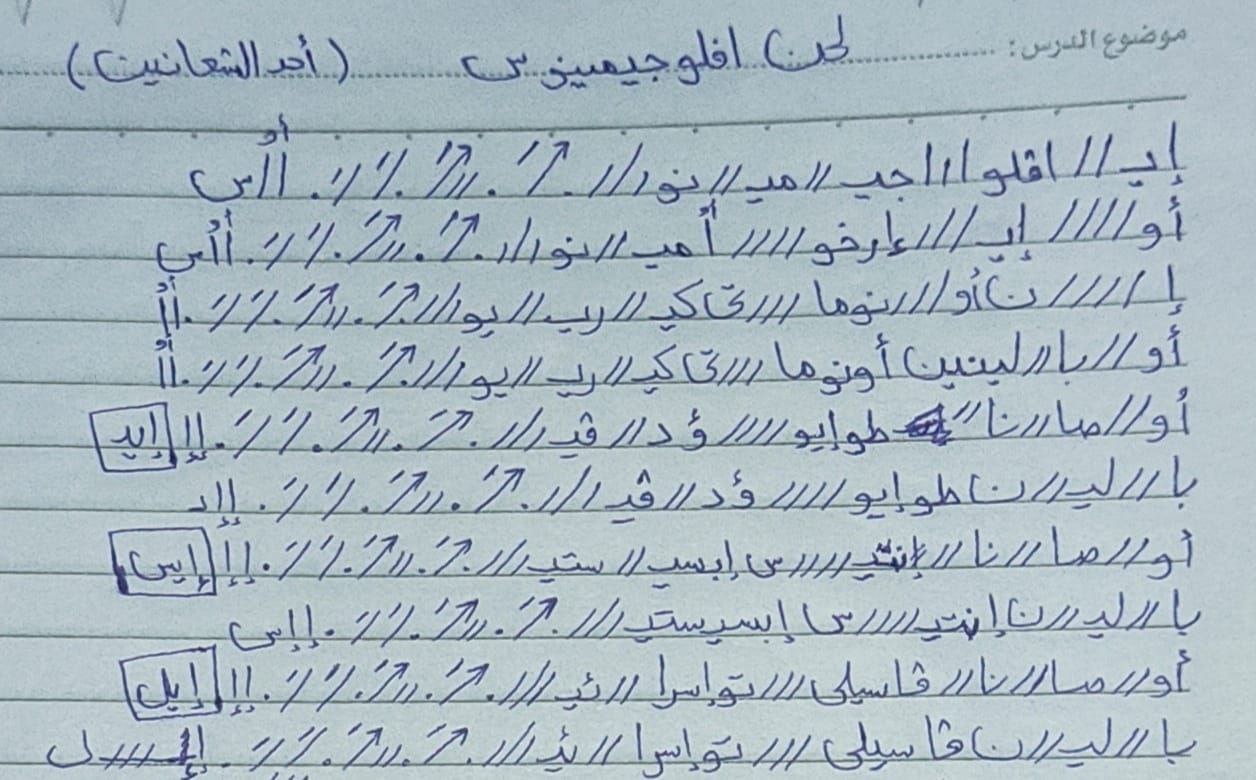 موضوع الدرس: لحن افلوجيمينوس (أحد الشعانين)
إيـ // افلو ///جيـ //ميـ //نو /// . ↗ / . // ↗/ . // . // أو أ//س
أو //// إيـ ///إرخو //// أميـ //نو /// . ↗ / . // ↗/ . // . // . أو أ أس
إ //// ن أو///نوما ///تي كيـ //ريـ //يو /// . ↗ / . // ↗/ . // . // . أو أأ
أو //با //لينين أونوما ///تي كيـ //ريـ //يو /// . ↗ / . // ↗/ . // . // . أو أأ
أو //صا //نا // طو إيو //// ؤ د //ڤيـ /// . ↗ / . // ↗/ . // . // . إإ إيد
با //ليـ //ن طو إيو //// ؤ د //ڤيـ /// . ↗ / . // ↗/ . // . // . إإد
أو //صا //نا // إنتيـ ////س إبسيـ //ستيـ /// . ↗ / . // ↗/ . // . // . إإ إيس
با //ليـ //ن إنتيـ ////س إبسيستيـ /// . ↗ / . // ↗/ . // . // . إإس
أو //صا //نا // ڤاسيلى /// تو إسرا //ئيـ /// . ↗ / . // ↗/ . // . // . إإ إيل
با //ليـ //ن ڤاسيلى /// تو إسرا //ئيـ /// . ↗ / . // ↗/ . // . // . إيـ////ل